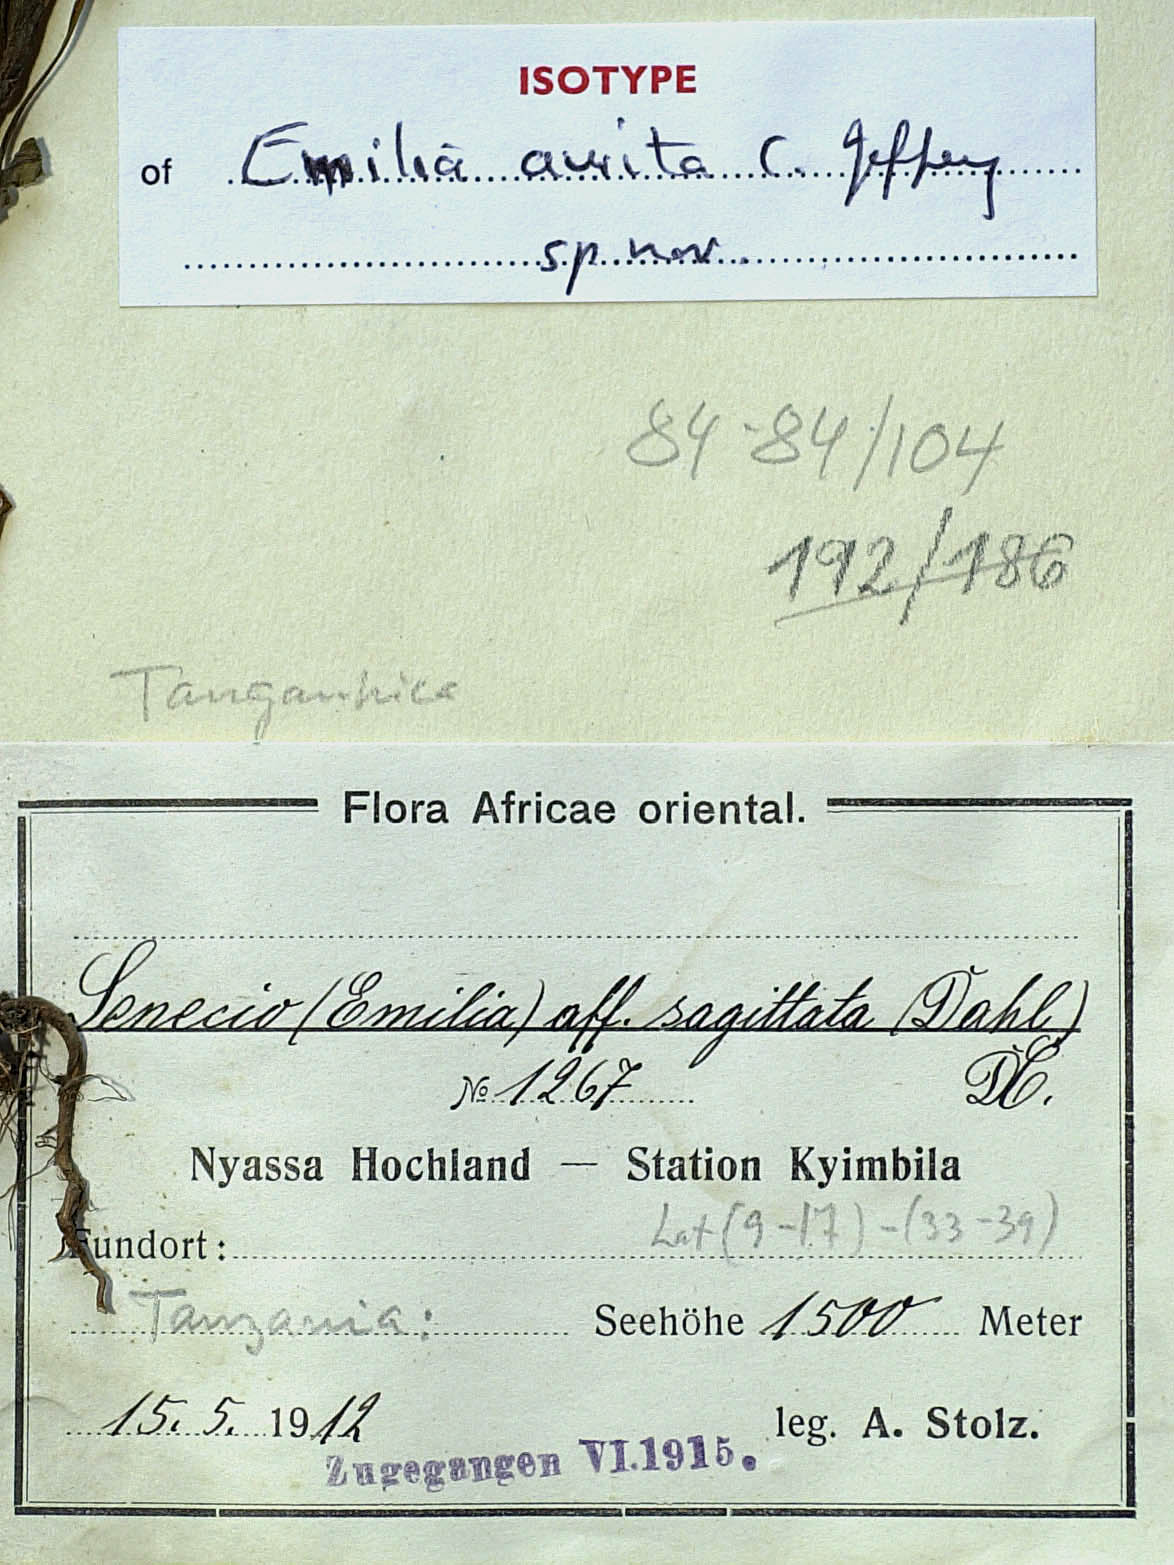 ISOTYPE
of Emilia aurita C. Jeffrey
sp. nov.
84-84/104
192/186
Tanganyika
Flora Africae oriental.
Senecio (Emilia) aff. sagittata (Vahl)
№ 1267 DC.
Nyassa Hochland — Station Kyimbila
Lat (9-17) - (33-39)
Fundort:
Tanzania: Seehöhe 1500 Meter
15. 5. 1912 leg. A. Stolz.
Zugegangen VI.1915.